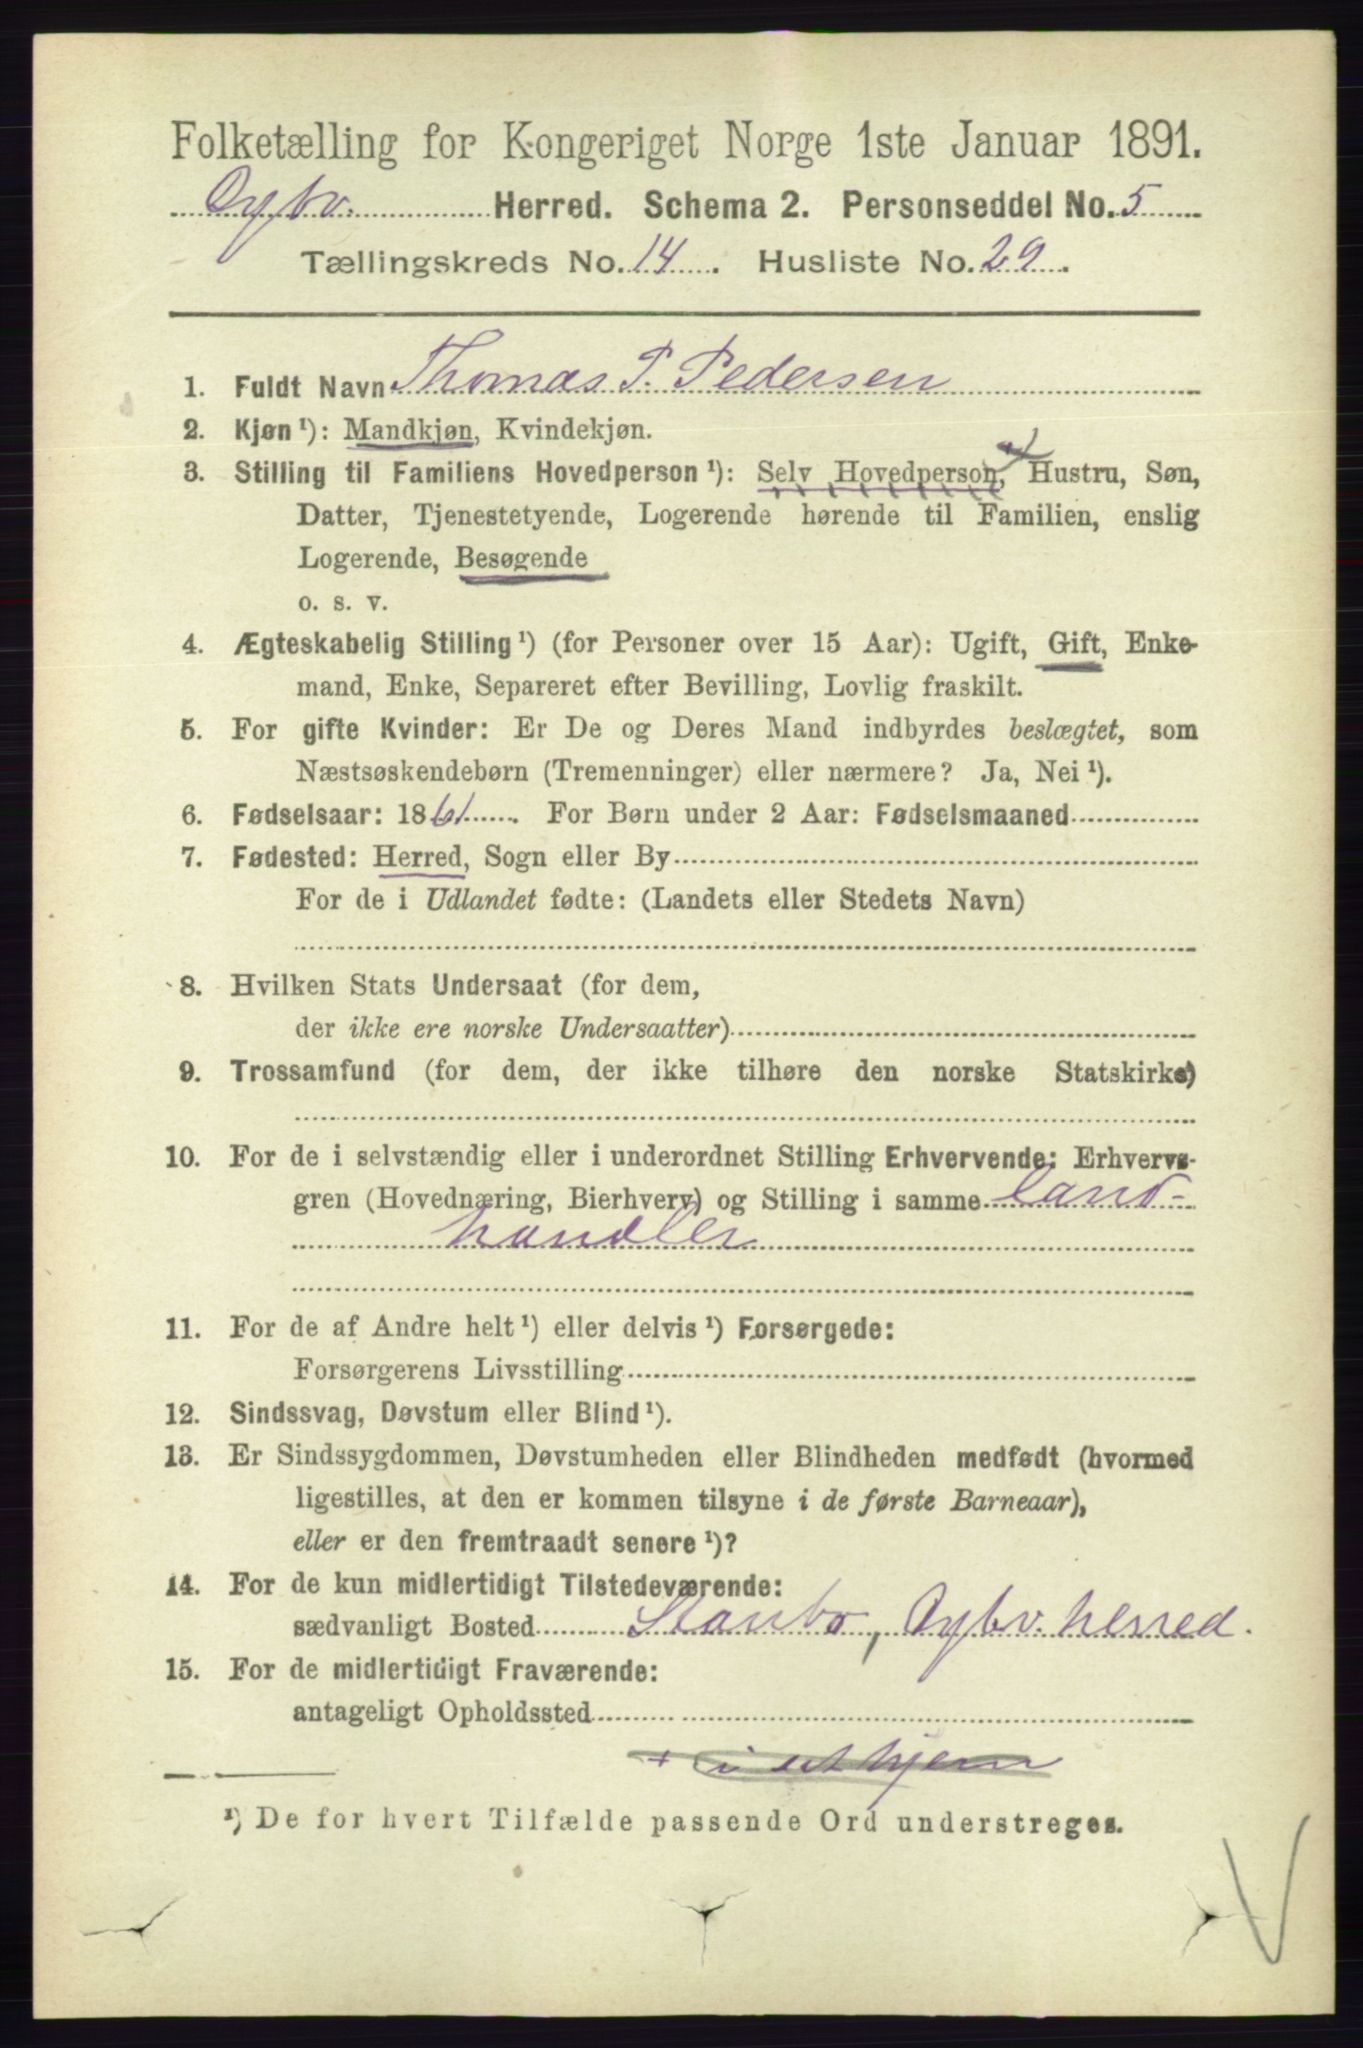 Folketælling for Kongeriget Norge 1ste Januar 1891.
Dybv. Herred. Schema 2. Personseddel No. 5
Tællingskreds No. 14. Husliste No. 29.
1. Fuldt Navn Thomas P. Pedersen
2. Kjøn ¹): Mandkjøn, Kvindekjøn.
3. Stilling til Familiens Hovedperson ¹): Selv Hovedperson, Hustru, Søn,
Datter, Tjenestetyende, Logerende hørende til Familien, enslig
Logerende, Besøgende
o. s. v.
4. Ægteskabelig Stilling ¹) (for Personer over 15 Aar): Ugift, Gift, Enke-
mand, Enke, Separeret efter Bevilling, Lovlig fraskilt.
5. For gifte Kvinder: Er De og Deres Mand indbyrdes beslægtet, som
Næstsøskendebørn (Tremenninger) eller nærmere? Ja, Nei ¹).
6. Fødselsaar: 1861. For Børn under 2 Aar: Fødselsmaaned
7. Fødested: Herred, Sogn eller By
For de i Udlandet fødte: (Landets eller Stedets Navn)
8. Hvilken Stats Undersaat (for dem,
der ikke ere norske Undersaatter)
9. Trossamfund (for dem, der ikke tilhøre den norske Statskirke)
10. For de i selvstændig eller i underordnet Stilling Erhvervende: Erhvervs-
gren (Hovednæring, Bierhverv) og Stilling i samme Land-
handler
11. For de af Andre helt ¹) eller delvis ¹) Forsørgede:
Forsørgerens Livsstilling
12. Sindssvag, Døvstum eller Blind ¹).
13. Er Sindssygdommen, Døvstumheden eller Blindheden medfødt (hvormed
ligestilles, at den er kommen tilsyne i de første Barneaar),
eller er den fremtraadt senere ¹)?
14. For de kun midlertidigt Tilstedeværende:
sædvanligt Bosted Staubø, Dybv. herred.
15. For de midlertidigt Fraværende:
antageligt Opholdssted
+ i et hjem
¹) De for hvert Tilfælde passende Ord understreges.